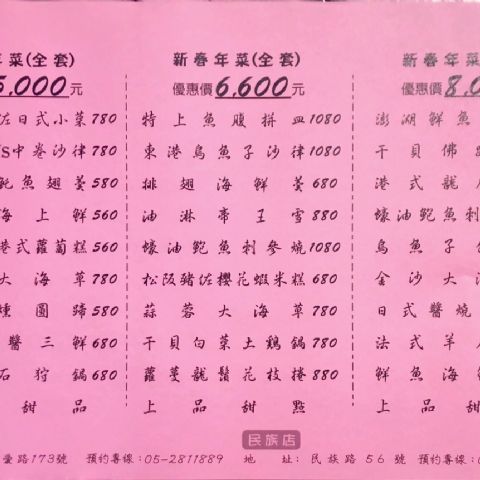 年菜(全套)
5,000元
佐日式小菜780
S中卷沙律780
魠魚翅羹580
海上鮮560
港式蘿蔔糕560
大海草780
燻圓蹄580
醬三鮮680
石狩鍋680
甜品
新春年菜(全套)
優惠價6,600元
特上魚腹拼皿1080
東港烏魚子沙律1080
排翅海鮮羹680
油淋帝王雪880
蠔油鮑魚刺參燒1080
松阪豬佐櫻花蝦米糕680
蒜蓉大海草780
干貝白菜土鷄鍋780
蘿蔓龍鬚花枝捲880
上品甜點
新春年菜
優惠價8,0
澎湖鮮魚
干貝佛跳
港式龍
蠔油鮑魚刺
烏魚子
金沙大
日式醬燒
法式羊
鮮魚海
上品
民族店
路173號 預約專線:05-2811889 地址:民族路56號 預約專線: